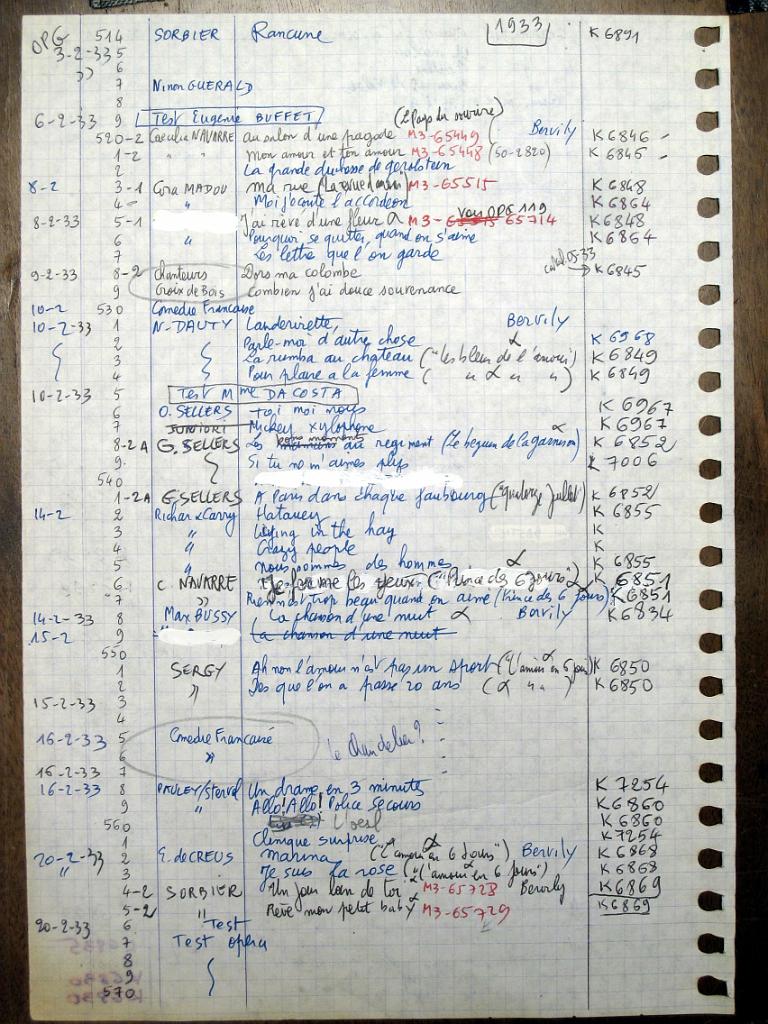 OPG 514 SORBIER Rancune 1933 K 6891
3-2-33 5
" 6
7 Ninon GUERALD
8
6-2-33 9 Test Eugenie BUFFET (Le Pays du sourire)
520-2 NAVARRE au salon d'une pagode M3-65449 Bervily K 6846
1-2 " " mon amour et ton amour M3-65448 (50-2820) K 6845
2 La grande duchesse de gerolstein
8-2 3-1 Gina MADOU ma rue M3-65515 K 6848
4 " Moi j'ecoute l'accordeon K 6864
Voir OPG 119
8-2-33 5-1 J'ai rêvé d'une fleur α M3-65714 K 6848
6 " Pourquoi se quitter, quand on s'aime K 6864
7 Les lettre que l'on garde
9-2-33 8-2 Chanteurs Dors ma colombe 05-33 → K 6845
9 Croix de Bois combien j'ai douce souvenance
10-2 530 Comedie Francaise
10-2-33 1 N-DAUTY Landerirette, Bervily
2 Parle-moi d'autre chose α K 6968
3 La rumba au chateau ("les bleus de l'amour) K 6849
4 Pour plaire a la femme ( " α " " ) K 6849
10-2-33 5 Test Mme DA COSTA
6 O. SELLERS Toi moi nous K 6967
7 JUNIORI Mickey xylophone α K 6967
8-2A G. SELLERS Les bons moments au regiment (Le beguin de la garnison) K 6852
9 Si tu ne m'aimes plus K 7006
540
1-2A G SELLERS A Paris dans chaque faubourg ("quatorze Juillet) K 6852
14-2 2 Richar & Carry Hatauey K 6855
3 " in the hay K
4 " Crazy people K
5 " nous sommes des hommes α K 6855
6 C. NAVARRE Je les yeux ("Prince des 6 jours") α K 6851
7 " Rien n'est trop beau quand on aime (Prince des 6 jours) K 6851
14-2-33 8 Max BUSSY La chanson d'une nuit α Bervily K 6834
15-2 9 La chanson d'une nuit
550
1 SERGY Ah non l'amour n'est pas un sport ("L'amour en 6 jours) K 6850
2 " Des que l'on a passé 20 ans (α " " ) K 6850
15-2-33 3
4
16-2-33 5 Comedie Francaise le chandelier?
6 "
16-2-33 7
16-2-33 8 PAULEY/Sterval Un drame en 3 minutes K 7254
9 " Allo! Allo! Police Secours K 6860
560 L'oeil K 6860
1 Clinique surprise K 7254
20-2-33 2 E. de CREUS Marina ("L'amour en 6 Jours") Bervily K 6868
" 3 Je suis la rose ("L'amour en 6 jours") K 6868
4-2 SORBIER Un jour loin de toi M3-65728 Bervily K 6869
5-2 " Rêve mon petit baby M3-65729 K 6869
20-2-33 6 Test
7 Test opera
8
9
570